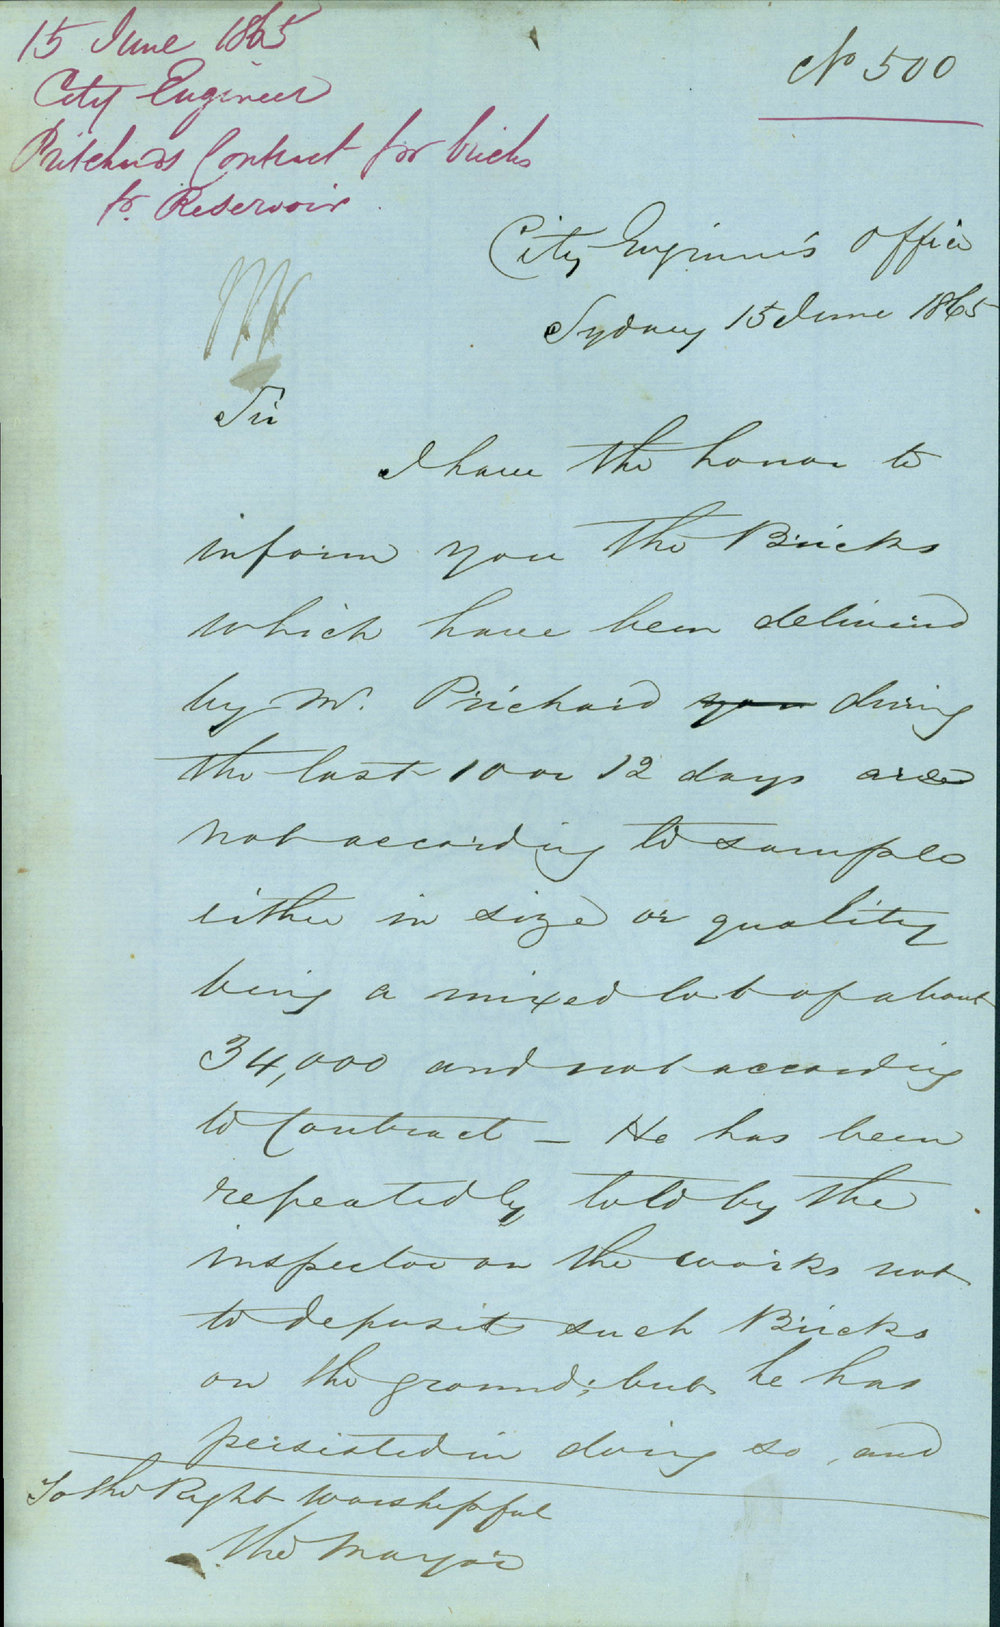 15 June 1865
City Engineer
Pritchards Contract for bricks
fr. Reservoir
No 500
City Engineer's Office
Sydney 15 June 1865
Sir
I have the honor to
inform you the Bricks
which have been delivered
by Mr. Prichard you during
the last 10 or 12 days are
not according to sample
either in size or quality
being a mixed lot of about
34,000 and not according
to Contract – He has been
repeatedly told by the
inspector on the works not
to deposit such Bricks
on the ground; but he has
persisted in doing so, and
To the Right Worshipful
The Mayor